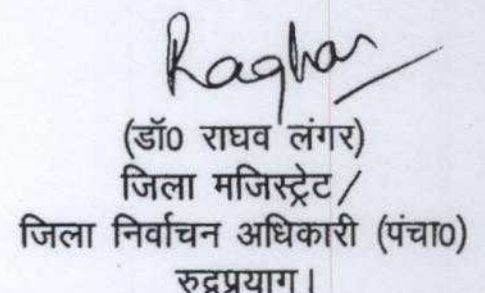 Raghav
(डॉ0 राघव लंगर)
जिला मजिस्ट्रेट /
जिला निर्वाचन अधिकारी (पंचा0)
रुद्रप्रयाग।